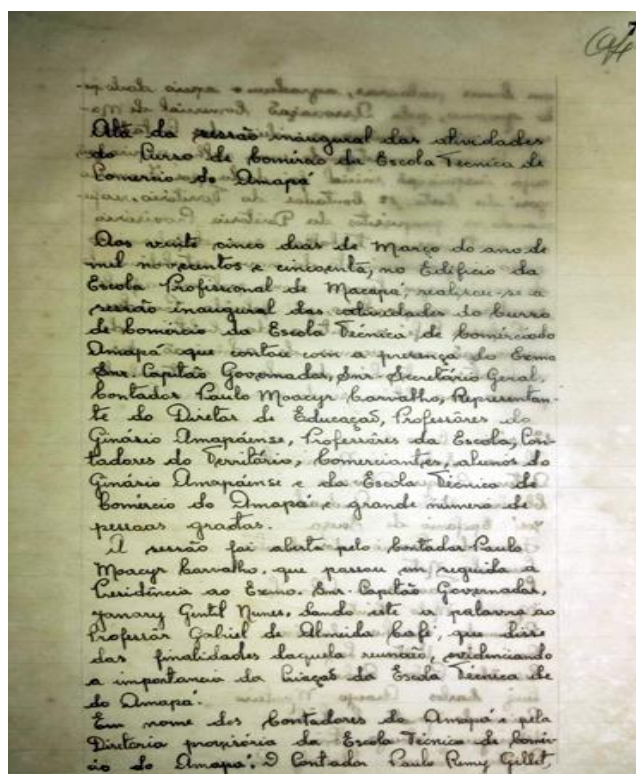 7
Ata da sessão inaugural das atividades
do Curso de Comércio da Escola Tecnica de
Comercio do Amapá
Aos vinte cinco dias de Março do ano de
mil novecentos e cincoenta, no Edifício da
Escola Profissional de Macapá, realisou-se a
sessão inaugural das atividades do Curso
de Comércio da Escola Técnica de Comércio do
Amapá que contou com a presença do Exmo
Snr. Capitão Governador, Snr. Secretário Geral,
Contador Paulo Moacyr Carvalho, Representan-
te do Diretor de Educação, Professôres do
Ginásio Amapáense, Professôres da Escola, Con-
tadores do Território, Comerciantes, alunos do
Ginásio Amapáense e da Escola Técnica de
Comércio do Amapá e grande número de
pessoas gradas.
A sessão foi aberta pelo Contador Paulo
Moacyr Carvalho, que passou em seguida a
Presidência ao Exmo. Snr. Capitão Governador,
Janary Gentil Nunes, dando este a palavra ao
Professôr Gabriel de Almeida Café, que disse
das finalidades daquela reunião, evidenciando
a importancia da Criação da Escola Técnica de
do Amapá.
Em nome dos Contadores do Amapá e pela
Diretoria provisória da Escola Técnica de Comér-
cio do Amapá, o Contador Paulo Remy Gillet,